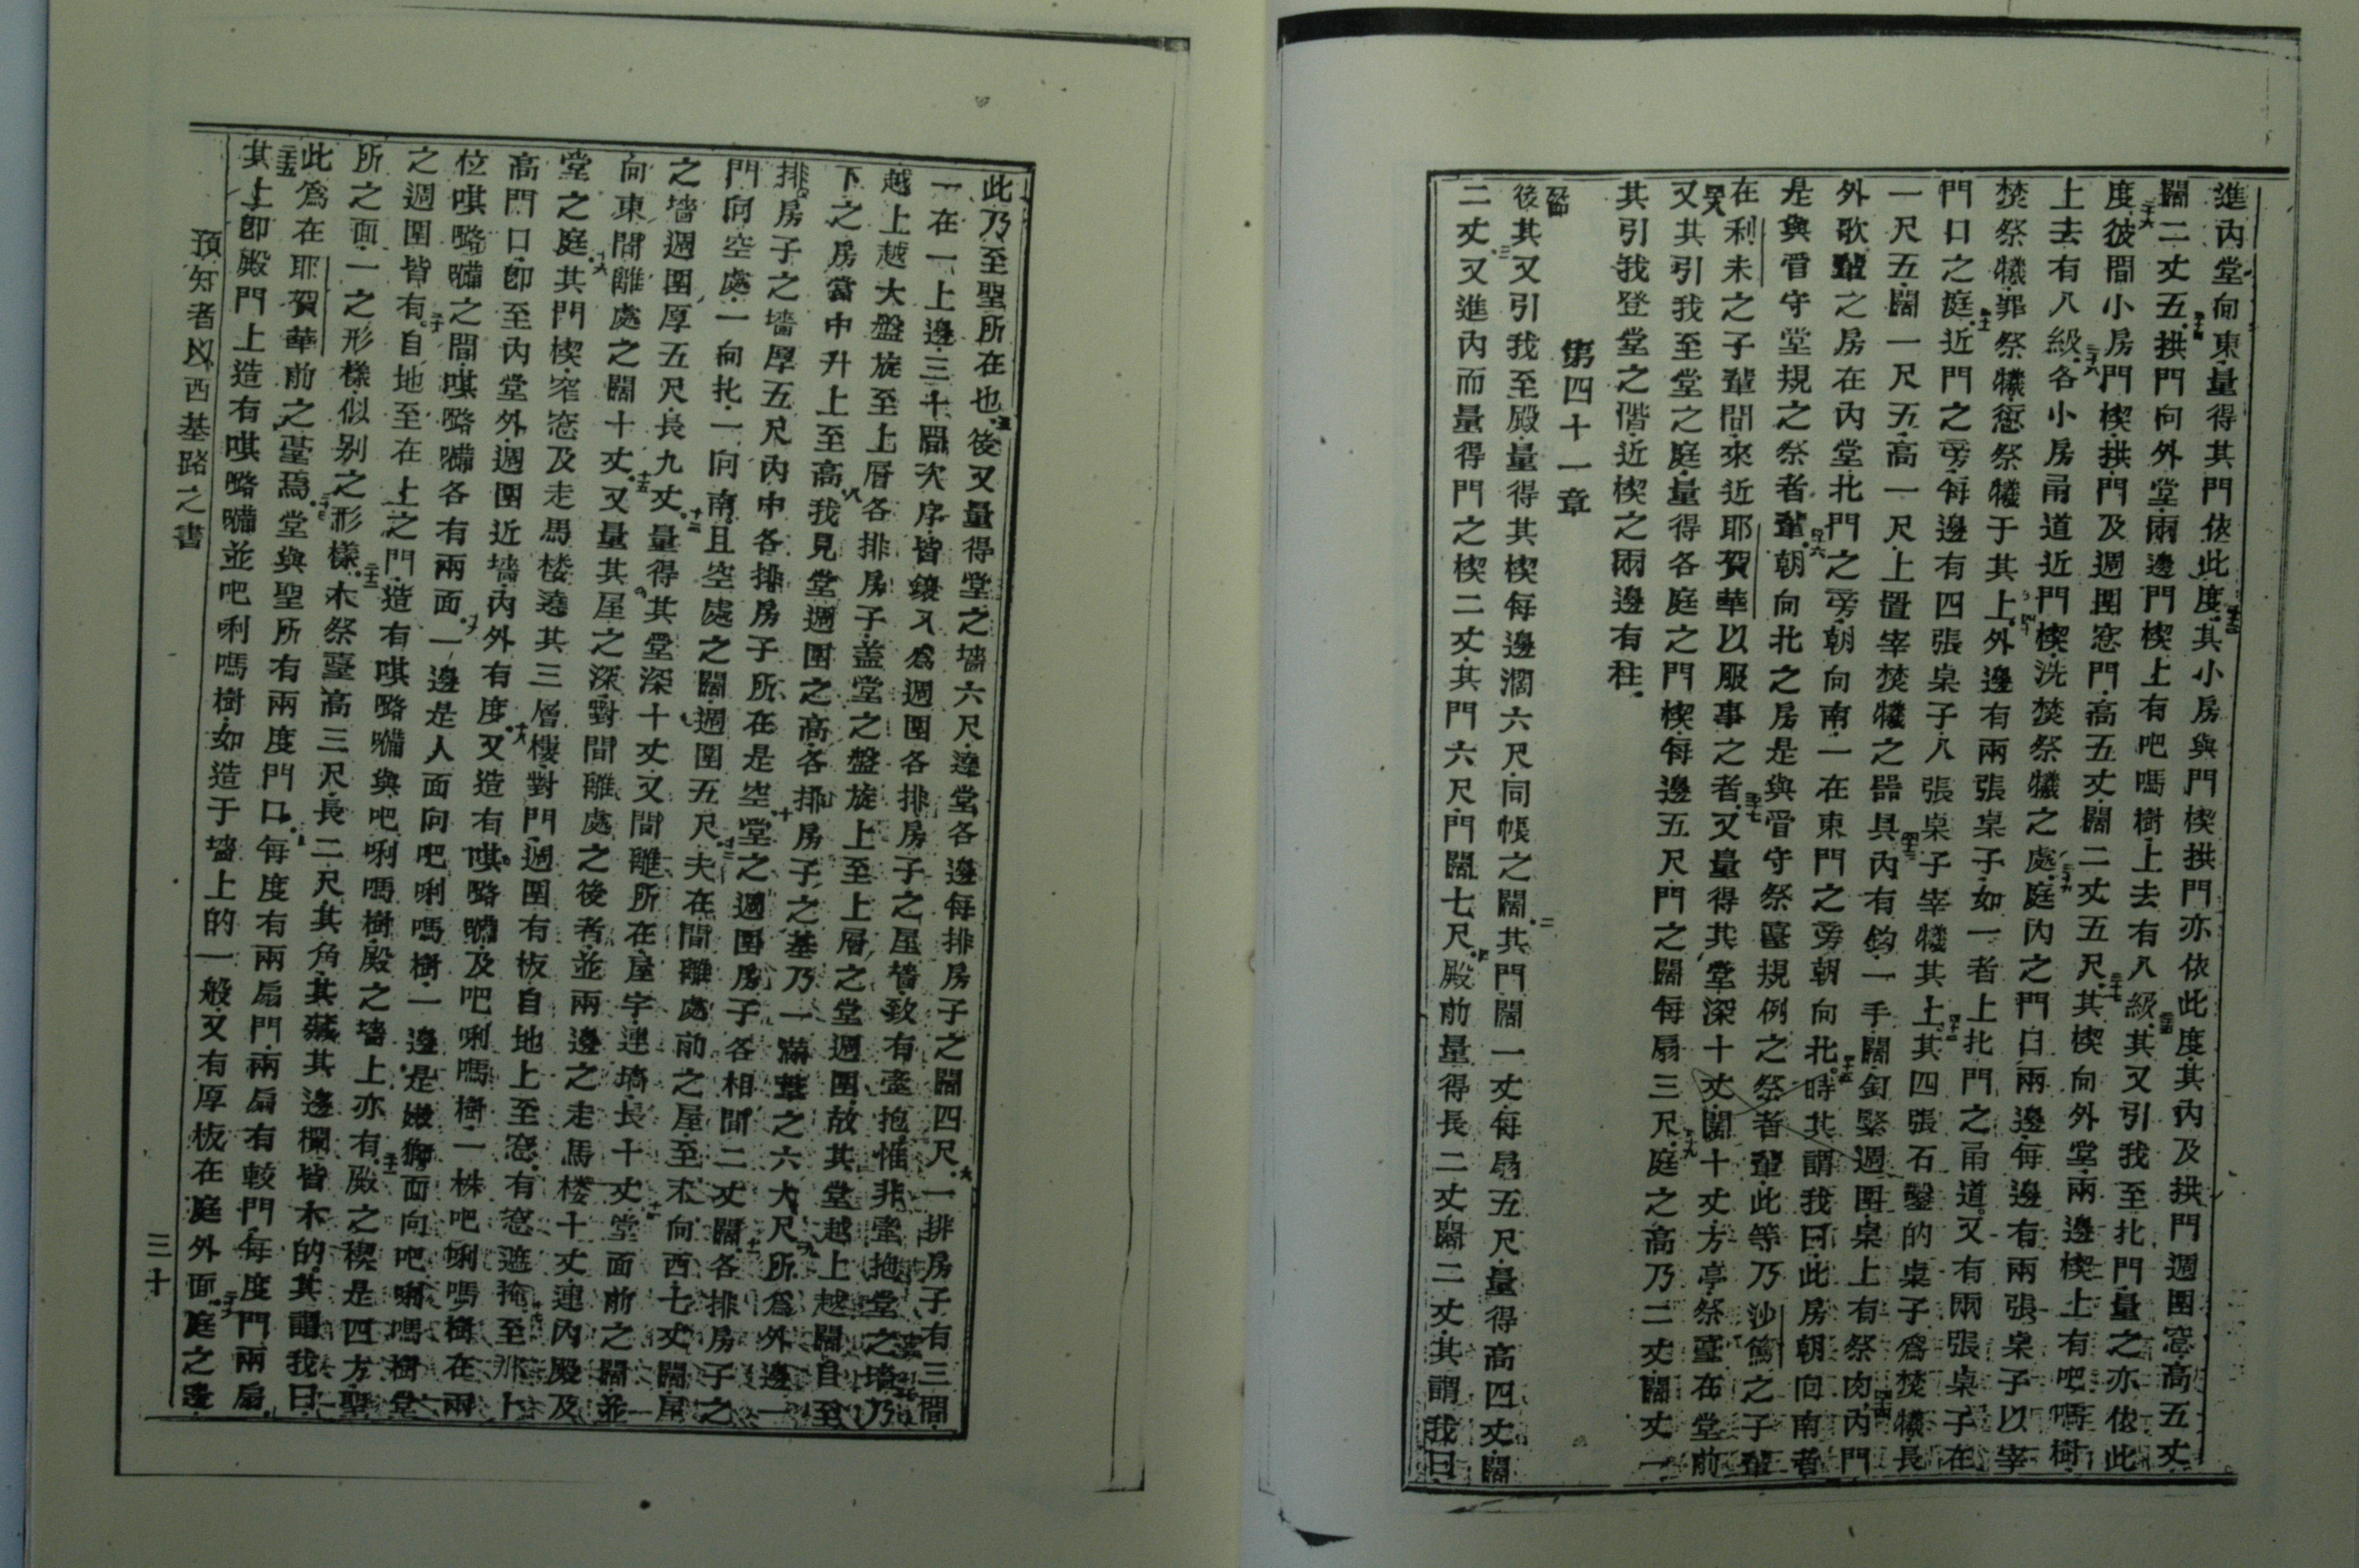 進內堂向東量得其門依此度其小房與門楔拱門亦依此度其內及拱門週圍窓高五丈
闊二丈五拱門向外堂兩邊門楔上有吧嗎樹上去有八級其又引我至北門量之亦依此
度彼間小房門楔拱門及週圍窓門高五丈闊二丈五尺其楔向外堂兩邊楔上有吧嗎樹
上去有八級各小房甬道近門楔洗焚祭犧之處庭內之門口兩邊每邊有兩張桌子以宰
焚祭犧罪祭犧愆祭犧于其上外邊有兩張桌子如一者上北門之甬道又有兩張桌子在
門口之庭近門之旁每邊有四張桌子八張桌子宰犧其上其四張石鑿的桌子為焚犧長
一尺五闊一尺五高一尺上置宰焚犧之器具內有鈎一手闊釘緊週圍桌上有祭肉內門
外歌輩之房在內堂北門之旁朝向南一在東門之旁朝向北時其謂我曰此房朝向南者
是與晋守堂規之祭者輩朝向北之房是與晋守祭臺規例之祭者輩此等乃沙篤之子輩
在利未之子輩間來近耶賀華以服事之者又量得其堂深十丈闊十丈方亭祭臺在堂前
又其引我至堂之庭量得各庭之門楔每邊五尺門之闊每扇三尺庭之高乃二丈闊丈一
其引我登堂之階近楔之兩邊有柱
第四十一章
後其又引我至殿量得其楔每邊濶六尺同帳之闊其門闊一丈每扇五尺量得高四丈闊
二丈又進內而量得門之楔二丈其門六尺門闊七尺殿前量得長二丈闊二丈其謂我曰
此乃至聖所在也後又量得堂之墻六尺遶堂各邊每排房子之闊四尺一排房子有三間
一在一上邊三十間次序皆鑲入為週圍各排房子之屋墻致有壼抱惟非壼抱堂之墻乃
越上越大盤旋至上層各排房子蓋堂之盤旋上至上層之堂週圍故其堂越上越闊自至
下之房當中升上至高我見堂週圍之高各排房子之基乃一滿葦之六大尺所為外邊一
排房子之墻厚五尺內中各排房子所在是空堂之週圍房子各相間二丈闊各排房子之
門向空處一向北一向南且空處之闊週圍五尺夫在間離處前之屋至末向西七丈闊屋
之墻週圍厚五尺長九丈量得其堂深十丈又間離所在屋字連墻長十丈堂面前之闊並
向東間離處之闊十丈又量其屋之深對間離處之後者並兩邊之走馬楼十丈連內殿及
堂之庭其門楔窄窓及走馬楼遶其三層樓對門週圍有板自地上至窓有窓遮掩至那上
高門口即至內堂外週圍近墻內外有度又造有唭㗉嘣及吧唎嗎樹一株吧唎嗎樹在兩
位唭㗉嘣之間唭㗉嘣各有兩面一邊是人面向吧唎嗎樹一邊是嫩獅面向吧唎嗎樹堂
之週圍皆有自地至在上之門造有唭㗉嘣與吧唎嗎樹殿之墻上亦有殿之楔是四方聖
所之面一之形樣似別之形樣木祭臺高三尺長二尺其角其藏其邊欄皆木的其謂我曰
此為在耶賀華前之臺焉堂與聖所有兩度門口每度有兩扇門兩扇有較門每度門兩扇
其上即殿門上造有唭㗉嘣並吧唎嗎樹如造于墻上的一般又有厚板在庭外面庭之邊
預知者凶西基路之書
三十